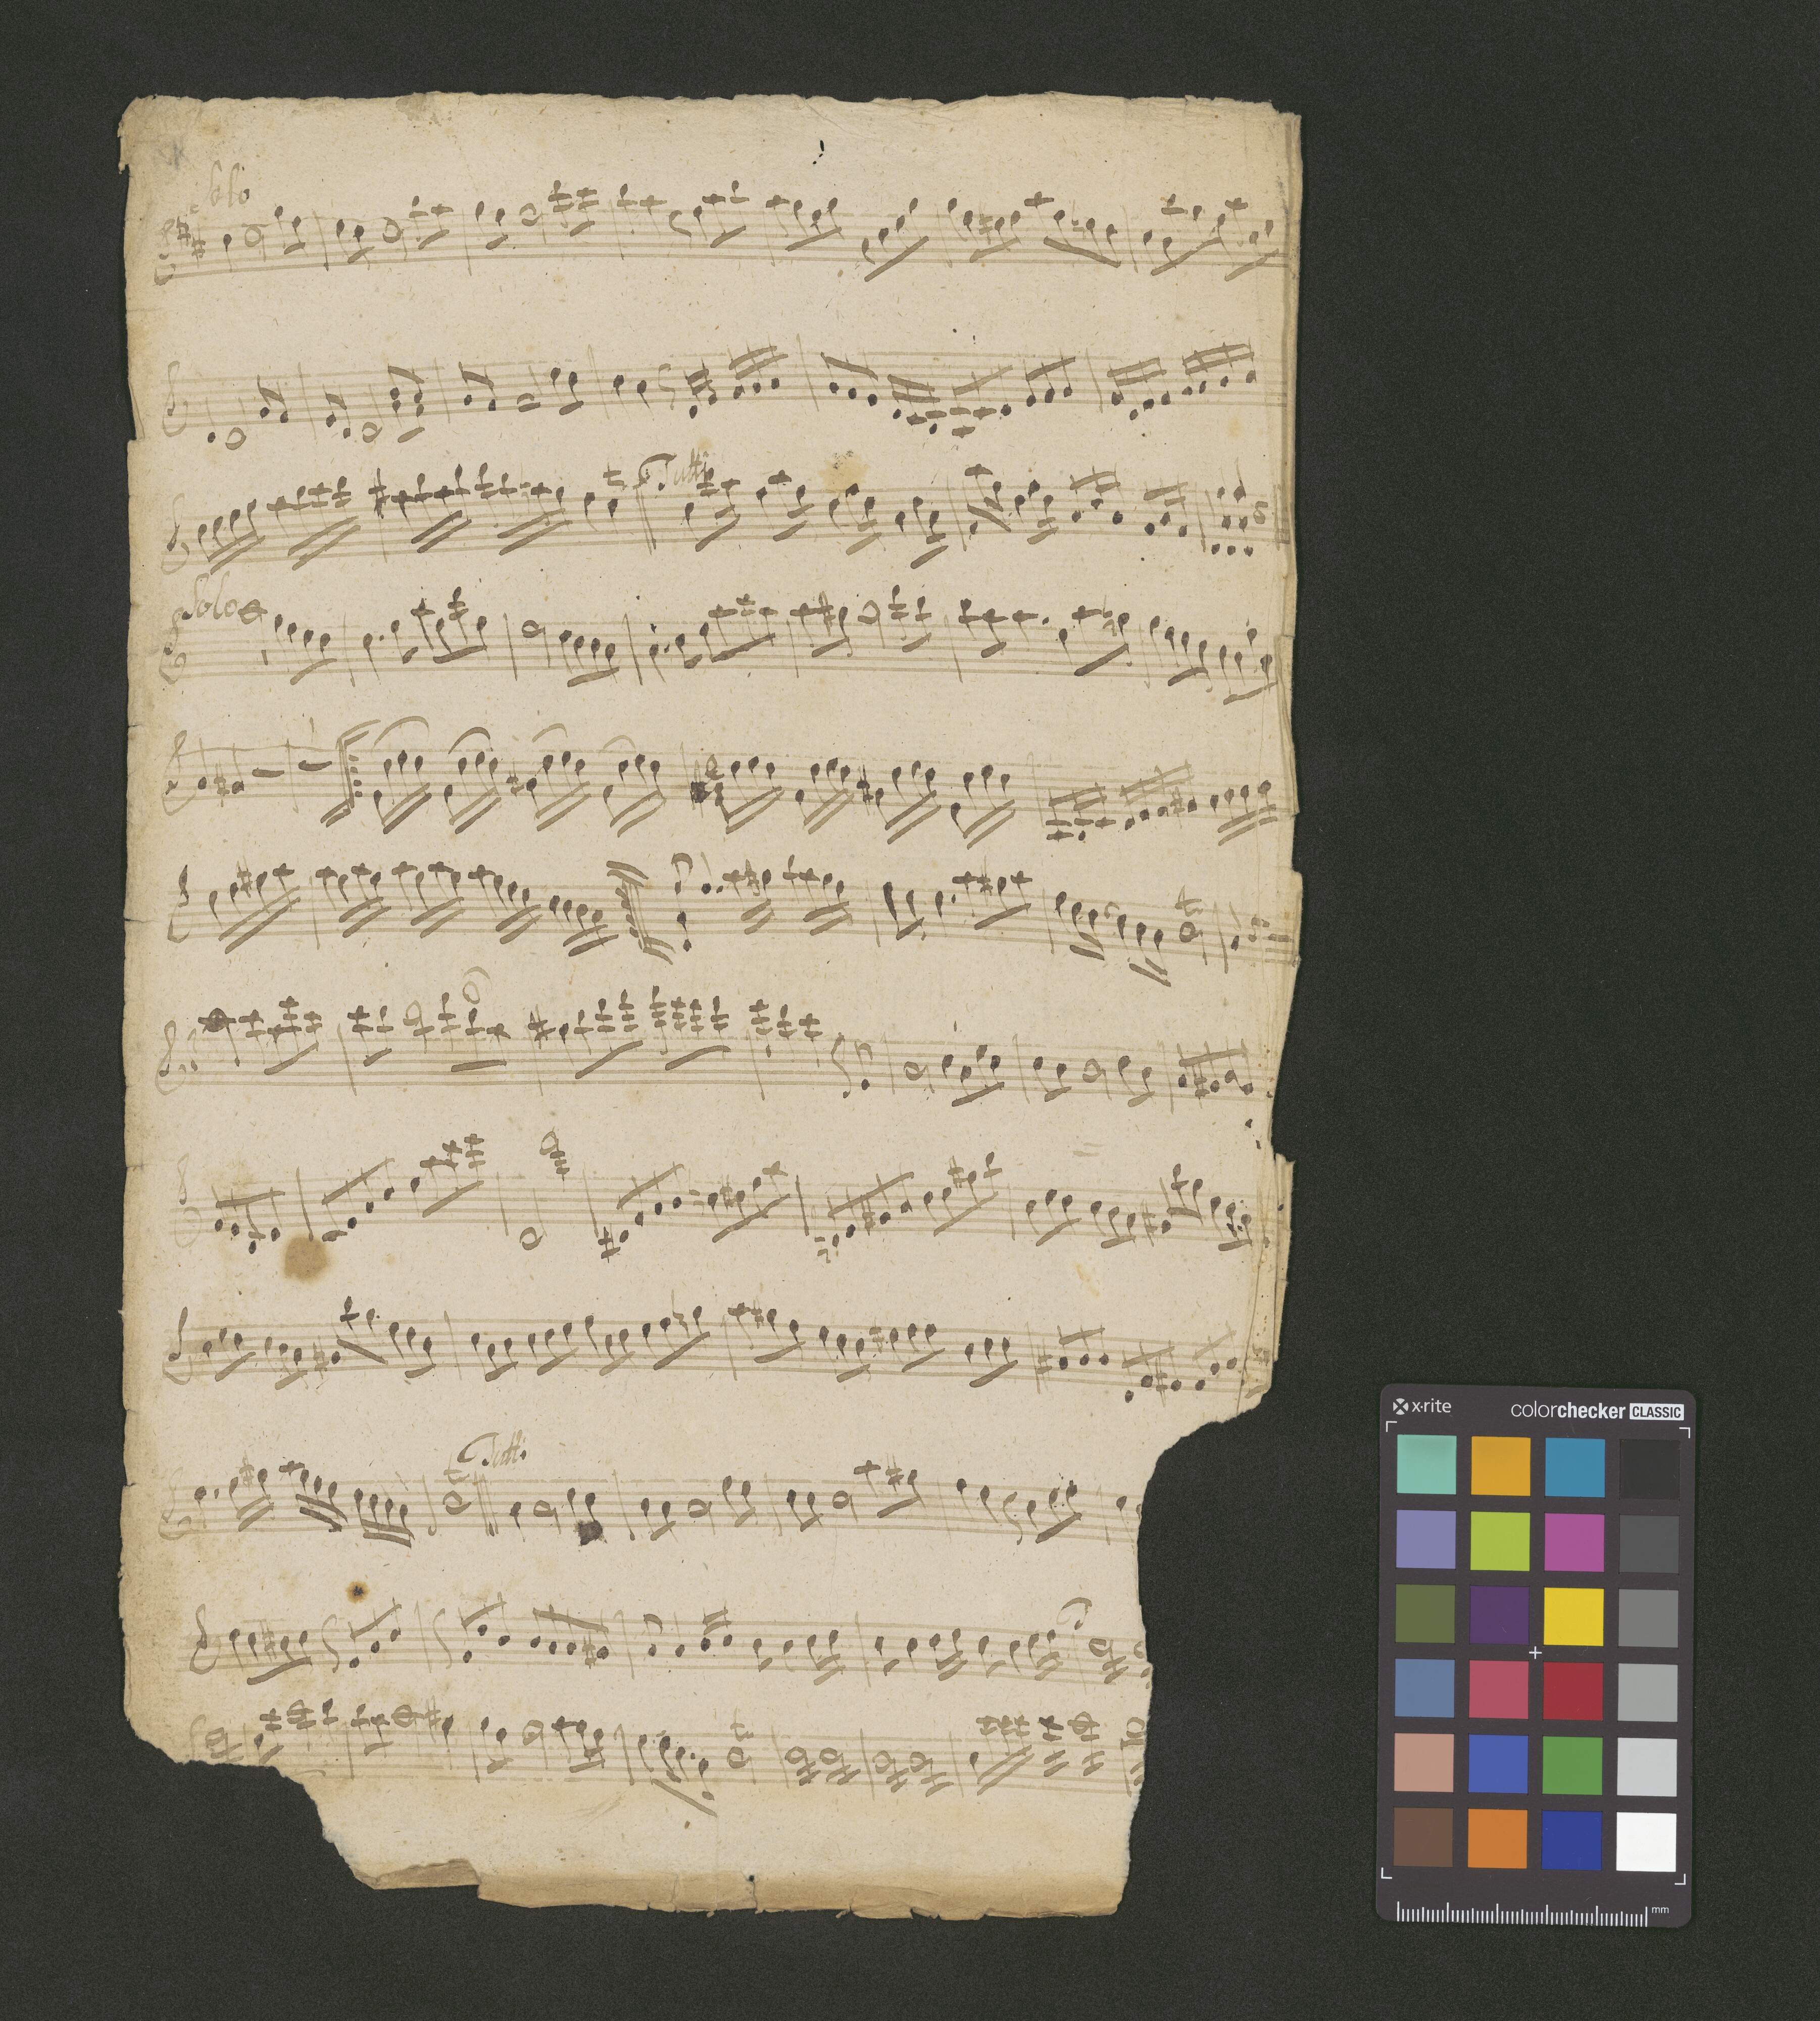 Solo
Tutti
Solo
Tutti
x·rite colorchecker CLASSIC
mm